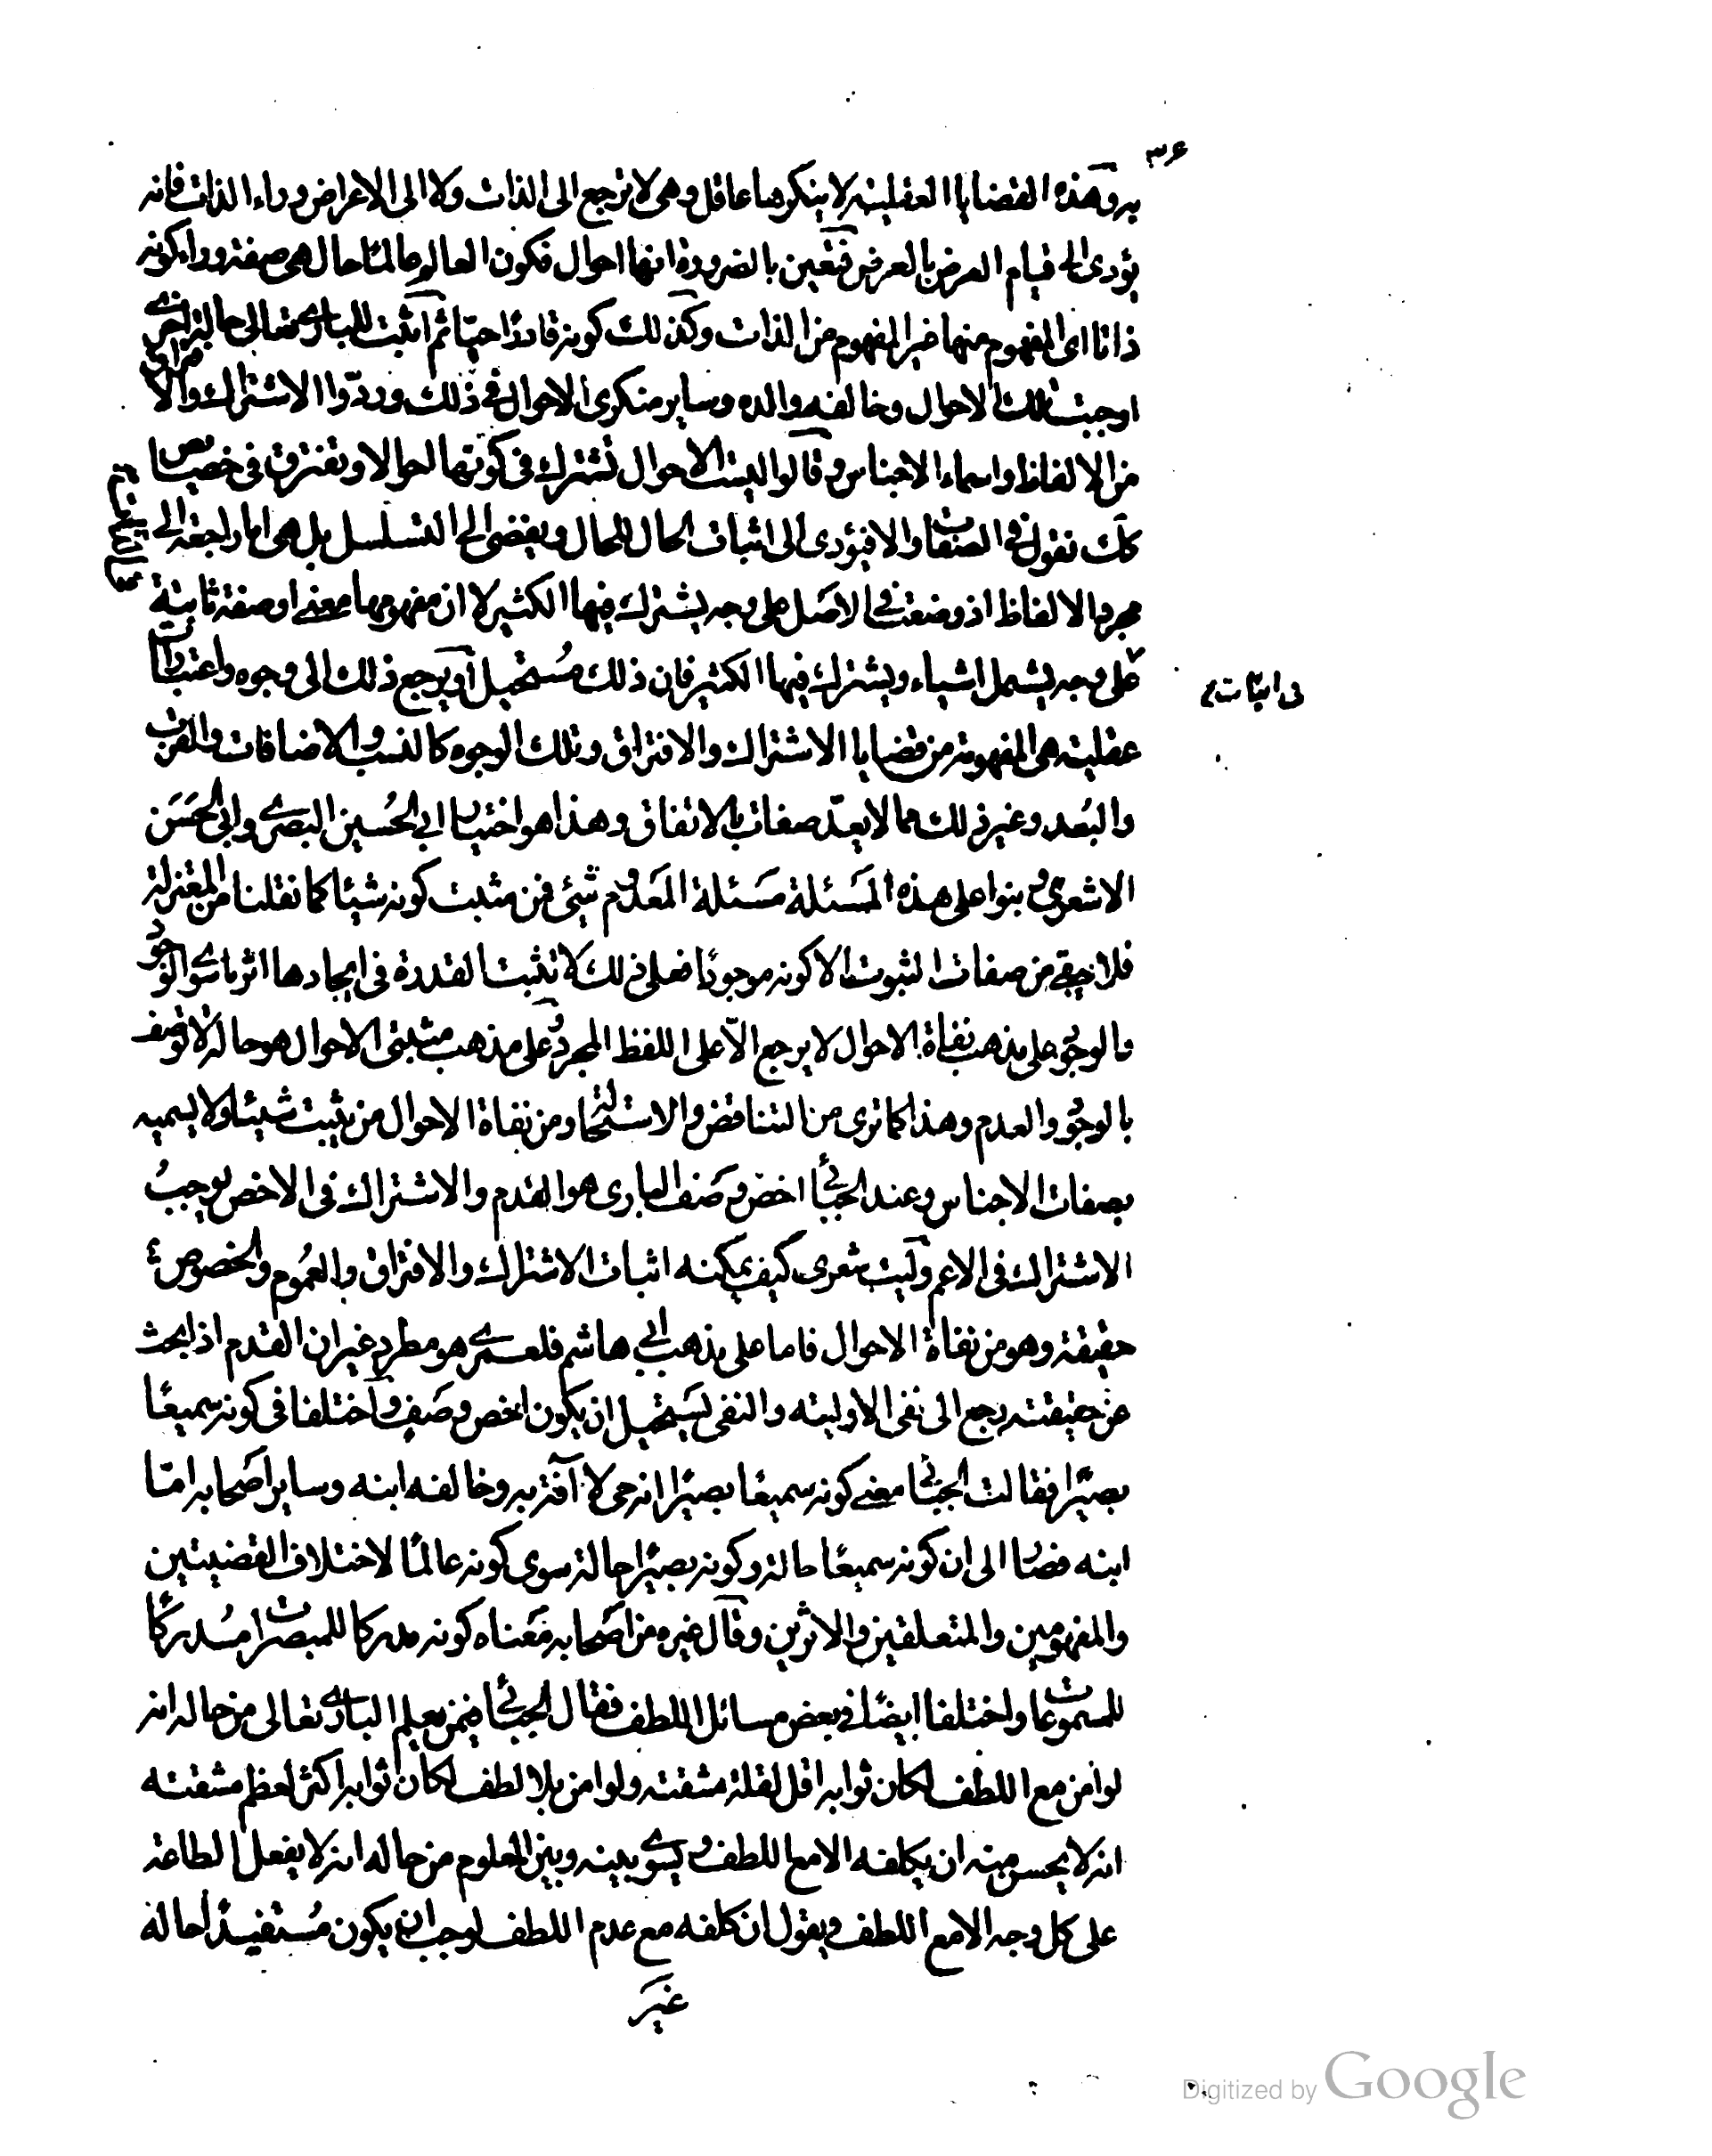 ٣۶
به وهذه القضايا العقلية لا ينكرها عاقل وهى لا ترجع الى الذات ولا الى الاعراض وراء الذات فانه
يؤدى الى قيام العرض بالعرض فتعين بالضرورة انها احوال فكون العالم عالما حال هى صفة وراء كونه
ذاتا اى المفهوم منها غير المفهوم من الذات وكذلك كونه قادرًا حيّا ثم اثبت للبارى تعالى حالة اخرى
اوجبت تلك الاحوال وخالفه والده وساير منكرى الاحوال فى ذلك وردّوا الاشتراك والافتراق
من الالفاظ واسماء الاجناس وقالوا اليست الاحوال تشترك فى كونها احوالا وتفترق فى خصايص
كك نقول فى الصفات والا فيؤدى الى اثبات الحال للحال ويفضى الى التسلسل بل هى اما راجعة الى
مجرد الالفاظ اذ وضعت فى الاصل على وجه يشترك فيها الكثير لا ان مفهومها معنى او صفة ثابتة
على وجه يشمل اشياء ويشترك فيها الكثير فان ذلك مُستحيل او يرجع ذلك الى وجوه واعتبارات
فى اثبات
عقلية هى المفهومة من قضايا الاشتراك والافتراق وتلك الوجوه كالنسب والاضافات والقرب
والبُعد وغير ذلك مما لا يعدّ صفات بالاتفاق وهذا هو اختيار ابى الحُسين البصرى وابى الحَسَن
الاشعرى وبنوا على هذه المَسَئلة مسَئلة المعَدوم شيئ فمن مثبت كونه شيئا كما نقلنا من المعتزلة
فلا يبقى من صفات الثبوت الا كونه موجودًا فعلى ذلك لا تثبت القدرة فى ايجادها اثر ما سوى الوجود
والوجود على مذهب نفاة الاحوال لا يرجع الّا على اللفظ المجرد وعلى مذهب مثبتى الاحوال هو حالة لا توصف
بالوجود والعدم وهذا كما ترى من التناقض والاستحالة ومن نفاة الاحوال من يثبت شيئا ولا يسميه
بصفات الاجناس وعند الجبائى اخص وصَف البارى هو القدم والاشتراك فى الاخص يوجبُ
الاشتراك فى الاعم وليت شعرى كيف يمكنه اثبات الاشتراك والافتراق والعمُوم والخصوص
حقيقة وهو من نفاة الاحوال فاما على مذهب ابى هاشم فلعمرى هو مطرد غير ان القدم اذا بحث
عن حقيقته رجع الى نفى الاولية والنفى يستحيل ان يكون اخص وصَف واختلفا فى كونه سميعًا
بصيرًا فقالت الجبائى معنى كونه سميعًا بصيرًا انه حى لا آفة به وخالفه ابنه وساير اصحابه امّا
ابنه فصار الى ان كونه سميعًا حالة وكونه بصيرًا حالة سوى كونه عالمًا لاختلاف القضيتين
والمفهومين والمتعلقين والاثرين وقال غيره من اصحابه معَناه كونه مدركا للمبصرات مُدركًا
للمسموعات واختلفا ايضًا فى بعض مسائل اللطف فقال الجبائى فيمن يعلم البارى تعالى من حاله انه
لو امن مع اللطف لكان ثوابه اقل لقلة مشقته ولو امن بلا لطف لكان ثوابه اكثر لعظم مشقته
انه لا يحسن منه ان يكلفه الا مع اللطف ويسوى بينه وبين المعلوم من حاله انه لا يفعل الطاعة
على كل وجه الا مع اللطف ويقول ان كلفه مع عدم اللطف لوجب ان يكون مُستفيدًا حاله
غيَر
Digitized by Google